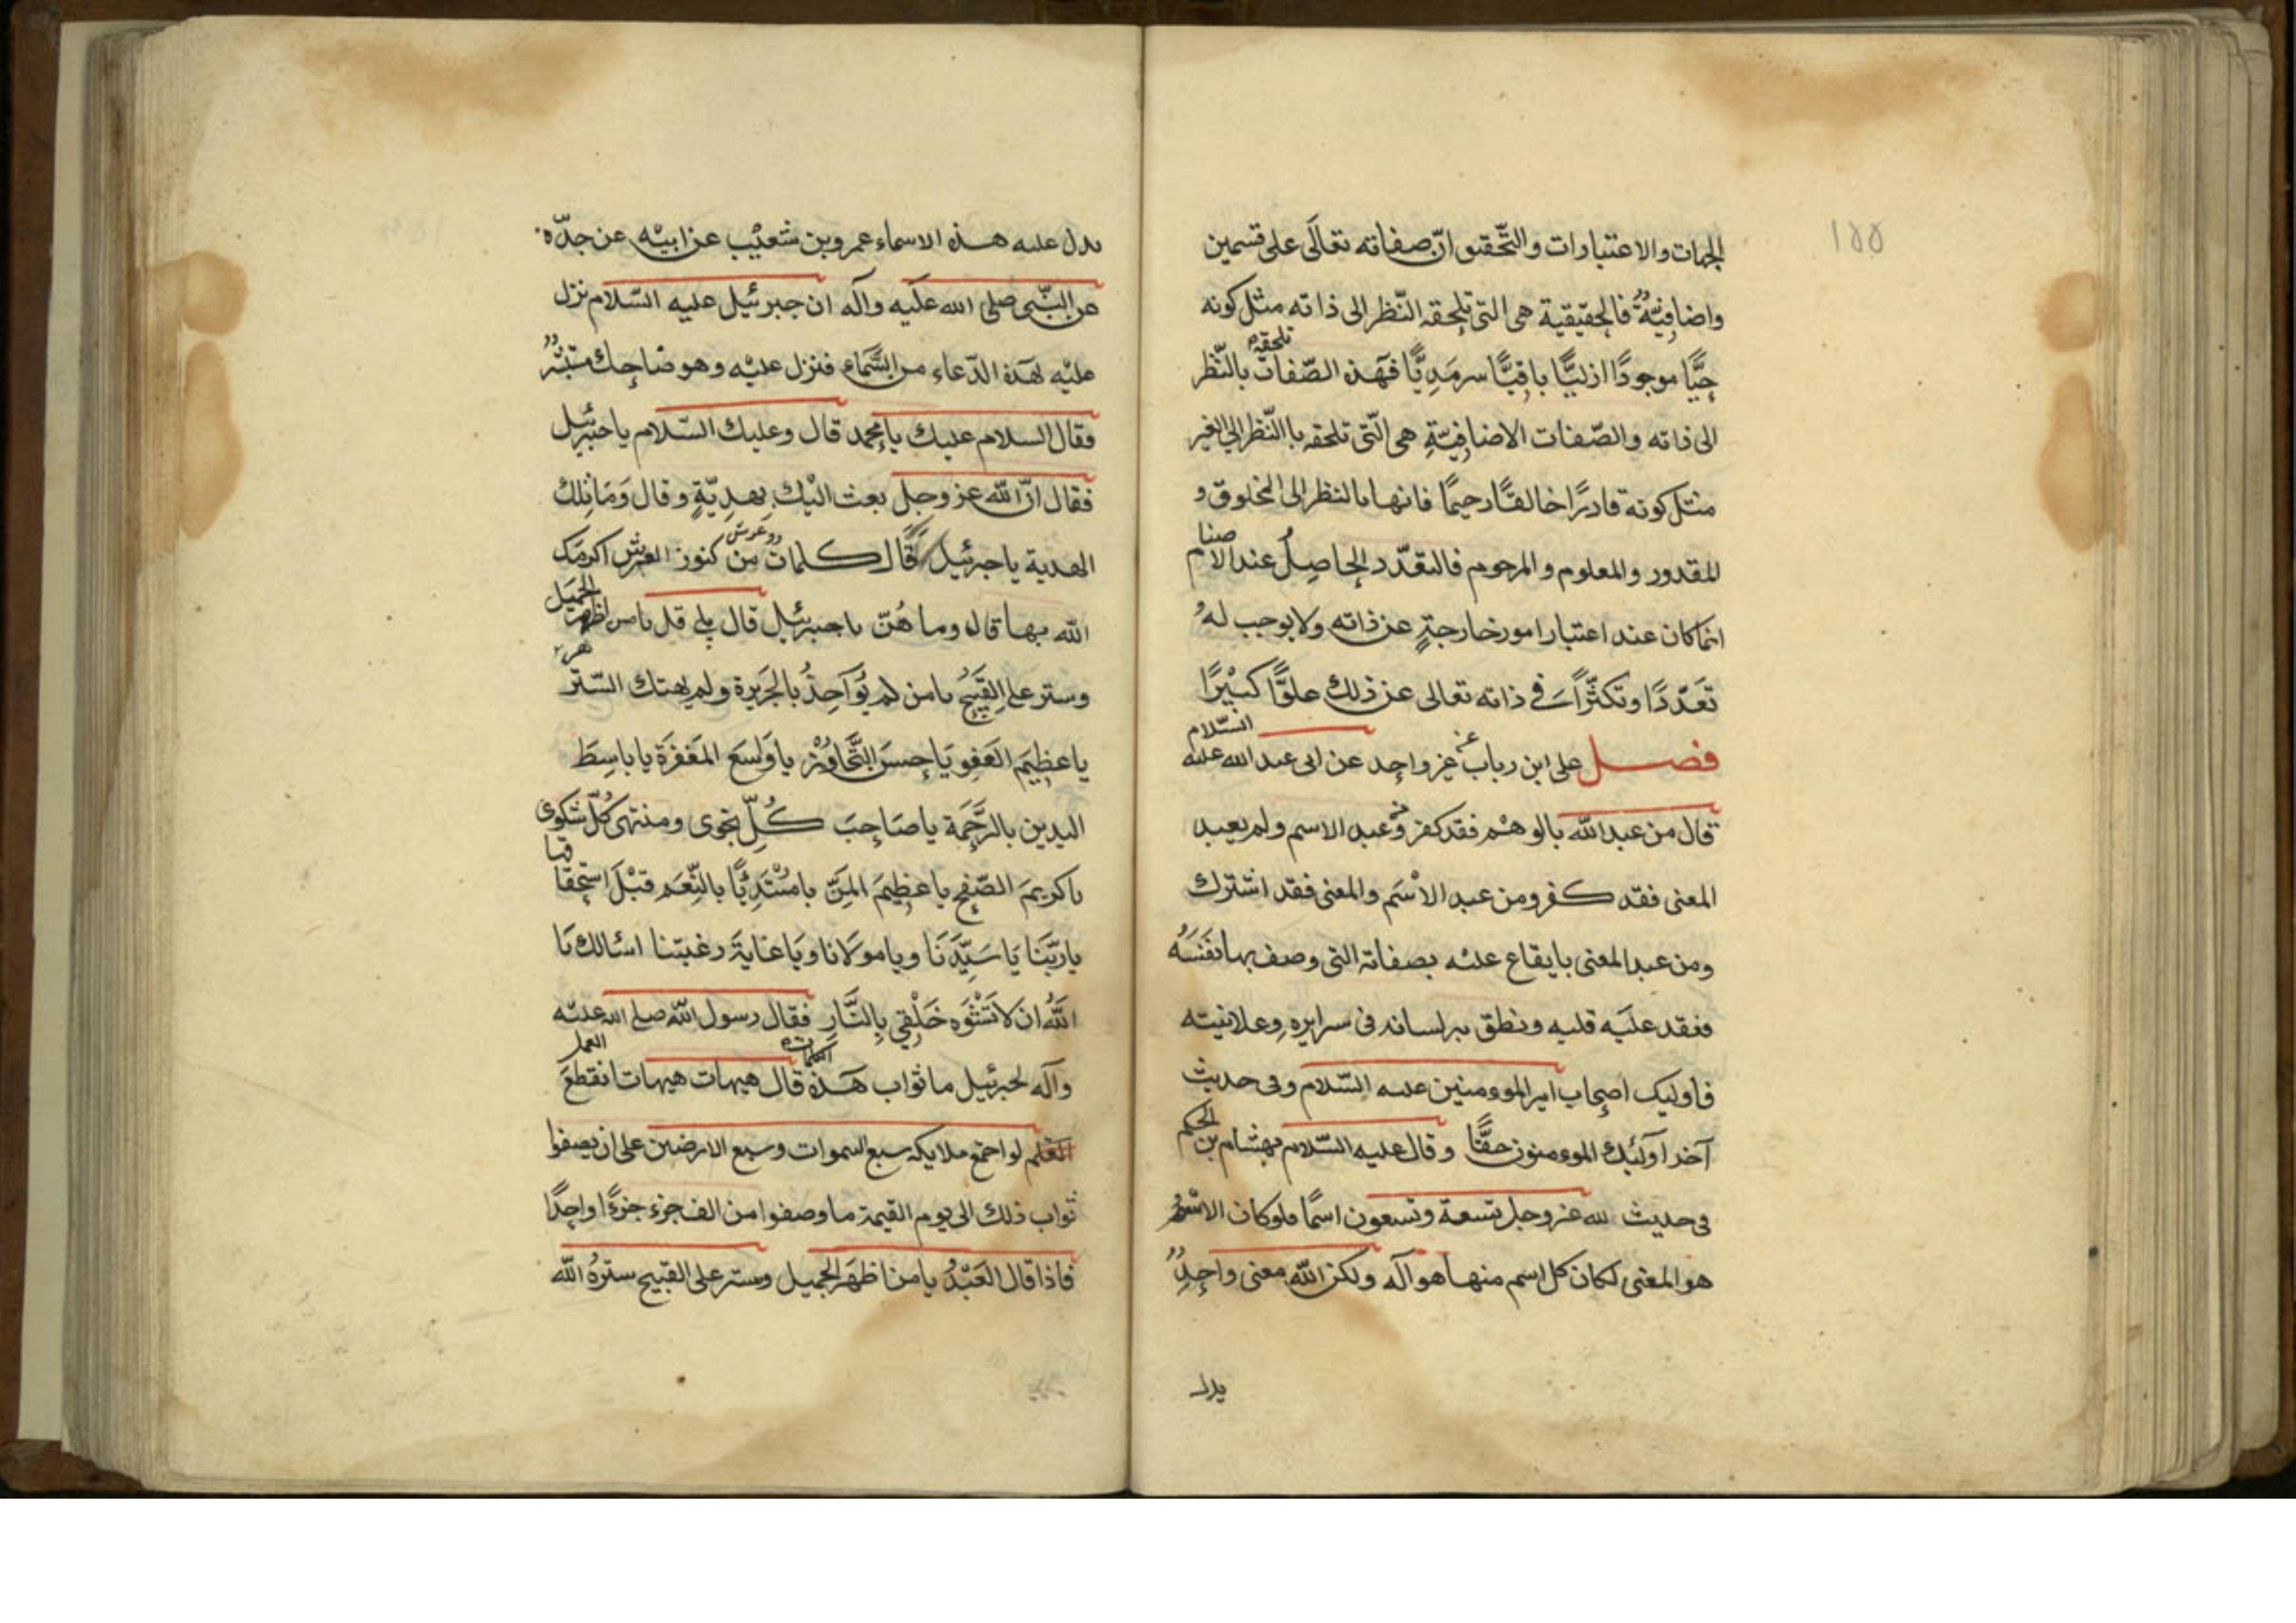 ١٥٥
الجهات والاعتبارات والتحقيق انّ صفاته تعالَى على قسمين
واضافيّةٌ فالحقيقية هى التى تلحقه النّظر الى ذاته مثل كونه
حيًّا موجودًا ازليًّا باقيًّا سرمَدِيًّا فهَذه الصّفات تلحقه بالنّظر
الى ذاته والصّفات الاضافيّةِ هى الّتى تلحقه باالنّظر الى الغير
مثل كونه قادرًا خالقًا رحيمًا فانها بالنظر الى المخلوق و
المقدور والمعلوم والمرحوم فالتعدّد الحاصِلُ عند الامنا
انما كان عند اعتبار امور خارجةٍ عن ذاته ولا يوجب لهُ
تَعَدّدًا وتكثّرًا فى ذاته تعالى عن ذلك علوًّا كبيْرًا
فصل على ابن رباب عن غير واحد عن ابى عبد الله عليه السّلام
قال من عبد الله بالوهْم فقد كفر ومن عبد الاسم ولم يعبد
المعنى فقد كفر ومن عبد الاسْم والمعنى فقد اشترك
ومن عبد المعنى بايقاع عليْه بصفاته التى وصف بها نفسَهُ
فعقد عليَه قلبه ونطق به لسانه فى سرايره وعلانيته
فاوليك اصحاب امير الموومنين عليه السّلام وفى حديث
آخر اولَئِك الموومنون حقًّا وقال عليه السّلام لهشام بن الحكم
فى حديث لله عز وجل تسعة وتسعون اسمًا فلو كان الاسْمُ
هو المعنى لكان كل اسم منها هو آله ولكن الله معنى واحدٌ
يدل
يدل عليه هذه الاسماء عمرو بن شعيْب عن ابيْه عن جدّه
عن النّبى صلى الله علَيه واَله ان جبرئيل عليه السّلام نزل
عليْه بهَذه الدّعاء من السَّمَاءِ فنزل عليْه وهو ضاحك مستبشرٌ
فقال السلام عليك يا محمد قال وعليك السّلام يا جبرئيل
فقال انّ الله عز وجل بعث اليْك بِهدِيّةٍ وقال وَمَا تِلك
الهدية يا جبرئيل قال كلمات من كنوز العرش اكرمك
الله بها قال وما هُنّ يا جبرئيل قال قل يا من اظهر الجميل
وستر على القَبِيْح يا من لم يُوآخِذْ بالجَرِيرة ولم يهتك السّتر
يا عظِيْم العَفوِ يَا حسنَ التَّجاوُزْ يا وَاسِعَ المَغفرَة يا باسِطَ
اليدين بالرَّحْمَة يا صَاحِبَ كُلِّ نجوى ومنتهى كُلّ شكوى
يا كريمَ الصّفحِ يا عظِيمَ المَنّ يا مبْتَدِئًا بالنِّعَم قبْلَ استحقاقها
يا ربّنَا يَا سَيِّدَنَا ويا مولَانا ويَا غايَةَ رغبتنا اسئالك يَا
اللهُ ان لا تَشْتَوه خَلْقِي بِالنَّارِ فقال رسول اللّه صلى الله عليْه
واَله لجبرئيل ما ثواب هَذه الكلمات قال هيهات هيهات انقطعَ العمل
العلم لو اجتمع ملايكة سبع السموات وسبع الارضين على ان يصفوا
ثواب ذلك الى يوم القيمة ما وصفوا من الف جزء جزءًا واحِدًا
فاذا قال العَبْدُ يا من اظهَر الجميل وستر على القبيح سترهُ الله